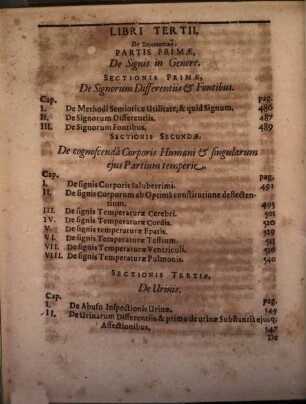 LIBRI TERTII,
De Semeiotica,
PARTIS PRIMÆ,
De Signis in Genere.
SECTIONIS PRIMÆ,
De Signorum Differentiis & Fontibus.
Cap. pag.
I. De Methodi Semioticæ Utilitate, & quid Signum. 486
II. De Signorum Differentiis. 487
III. De Signorum Fontibus. 489
SECTIONIS SECUNDÆ.
De cognoscendâ Corporis Humani & singularum
ejus Partium temperie.
Cap. pag.
I. De signis Corporis Saluberrimi. 491
II. De signis Corporum ab Optimâ constitutione deflecten-
tium. 495
III. De signis Temperaturæ Cerebri. 501
IV. De signis Temperaturæ Cordis. 510
V. De signis temperaturæ Epatis. 520
VI. De signis Temperaturæ Testium. 531
VII. De signis Temperaturæ Ventriculi.
VIII. De signis Temperaturæ Pulmonis. 540
SECTIONIS TERTIÆ,
De Urinis.
Cap. pag.
I. De Abusu Inspectionis Urinæ.
II. De Urinarum Differentiis & primo de urinæ Substantiâ ejusq;
Affectionibus. 547
De